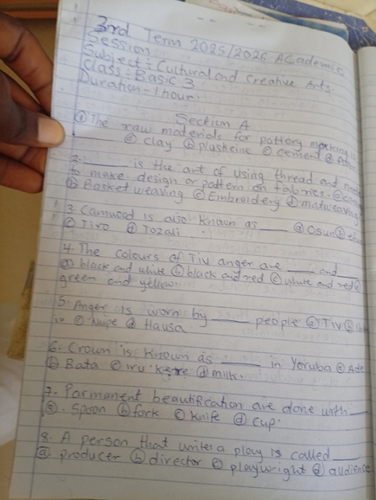 3rd Term 2025/2026 Academic
Session
Subject: Cultural and Creative Arts
Class: Basic 3
Duration - 1hour.
Section A
① The raw materials for pottery making
___ ⓐ clay ⓑ plasticine ⓒ cement ⓓ
2. ___ is the art of using thread and
to make design or pattern on fabrics. ⓐ
ⓑ Basket weaving ⓒ Embroidery ⓓ mat weaving
3. Camwood is also known as ___ ⓐ Osun ⓑ
ⓒ Tiro ⓓ Tozali
4. The colours of Tiv anger are ___ and
ⓐ black and white ⓑ black and red ⓒ white and red ⓓ
green and yellow.
5. Anger is worn by ___ people ⓐ Tiv ⓑ
ⓒ Nupe ⓓ Hausa
6. Crown is known as ___ in Yoruba ⓐ Ade
ⓑ Bata ⓒ iru kere ⓓ milk.
7. Parmanent beautification are done with
ⓐ. Spoon ⓑ fork ⓒ knife ⓓ cup.
8. A person that write a play is called ___
ⓐ producer ⓑ director ⓒ playwright ⓓ audience